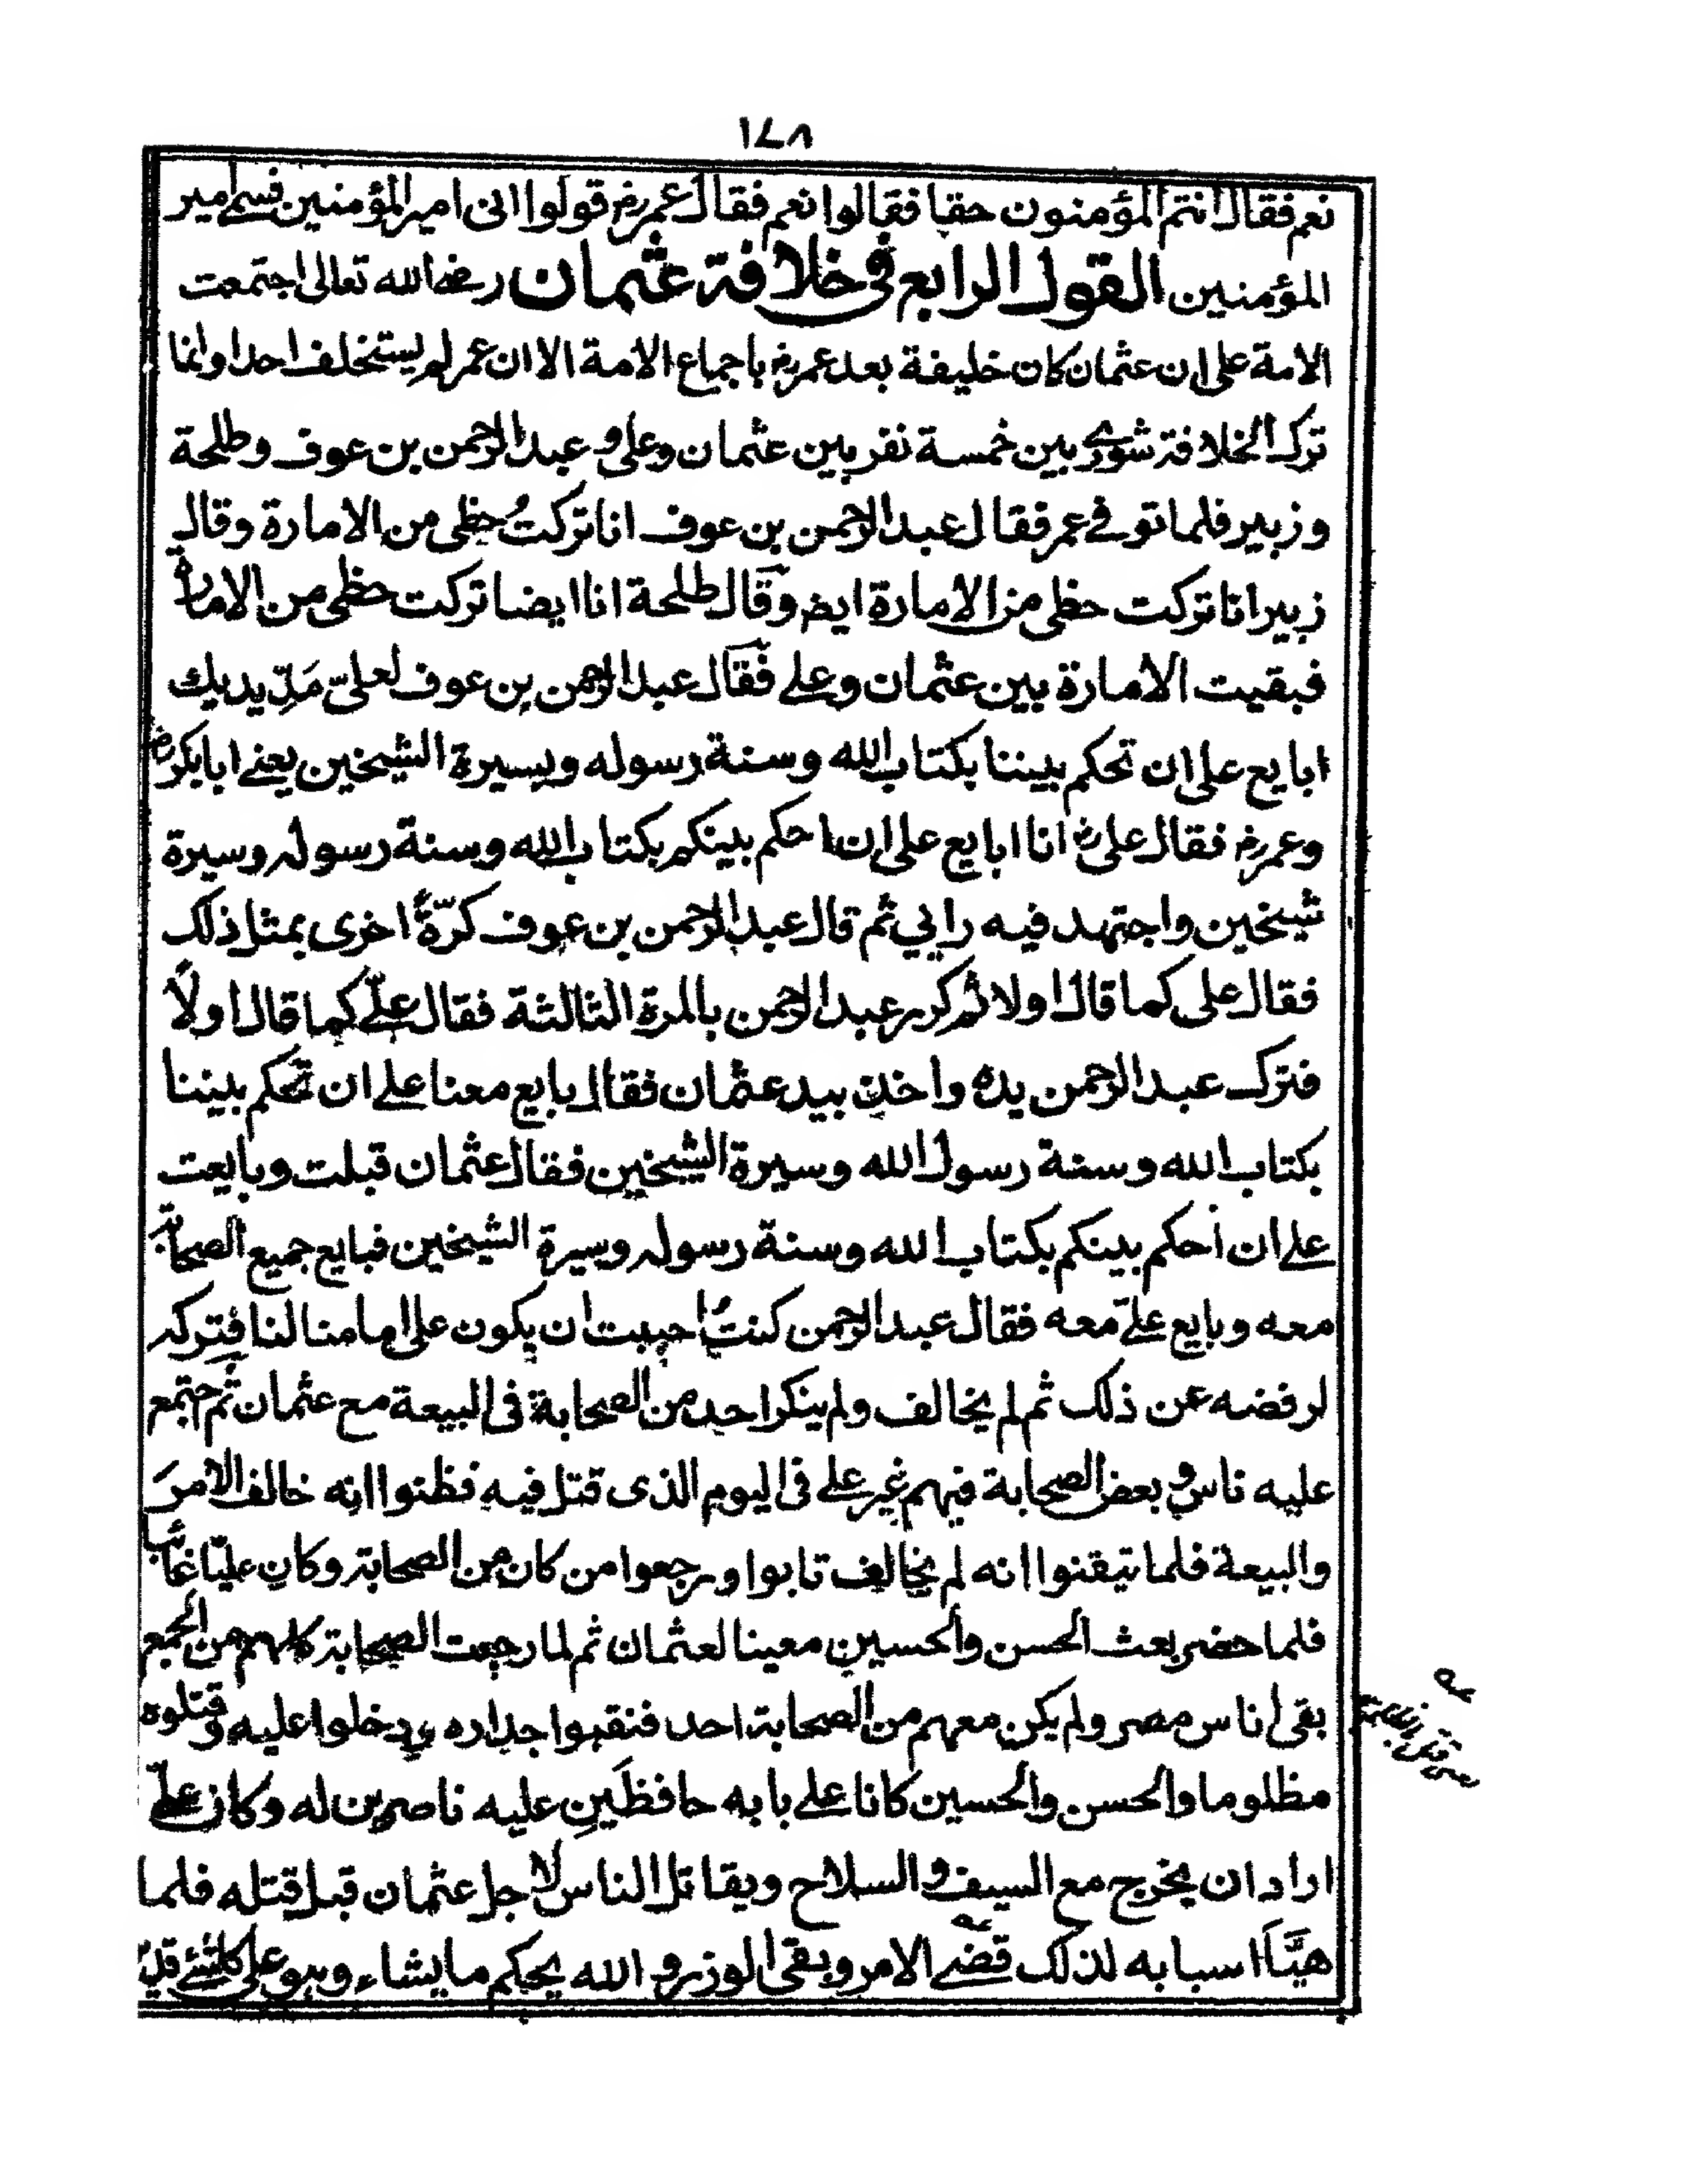 ١٤٨
نعم فقال انتم المؤمنون حقا فقالوا نعم فقال عمر رض قولوا انى امير المؤمنين فسمى امير
المؤمنين القول الرابع في خلافة عثمان رضه الله تعالى اجتمعت
الامة على ان عثمان كان خليفة بعد عمر رض باجماع الامة الا ان عمر لم يستخلف احدا وانما
ترك الخلافة شورى بين خمسة نفر بين عثمان وعلى و عبد الرحمن بن عوف وطلحة
وزبير فلما توفى عمر فقال عبد الرحمن بن عوف انا تركتُ حظى من الامارة وقال
زبير انا تركت حظى من الامارة ايض وقال طلحة انا ايضا تركت حظى من الامارة
فبقيت الامارة بين عثمان وعلى فقال عبد الرحمن بن عوف لعلىّ مَدِّ يديك
ابايع على ان تحكم بيننا بكتاب الله وسنة رسوله وبسيرة الشيخين يعنى ابابكر رض
وعمر رض فقال على رض انا ابايع على ان احكم بينكم بكتاب الله وسنة رسوله وسيرة
شيخين واجتهد فيه رايي ثم قال عبد الرحمن بن عوف كرّةً اخرى بمثل ذلك
فقال على كما قال اولا ثم كرر عبد الرحمن بالمرة الثالثة فقال علىّ كما قال اولاً
فترك عبد الرحمن يده واخذ بيد عثمان فقال بايع معنا على ان تحكم بيننا
بكتاب الله وسنة رسول الله وسيرة الشيخين فقال عثمان قبلت وبايعت
على ان أحكم بينكم بكتاب الله وسنة رسوله وسيرة الشيخين فبايع جميع الصحابة
معه وبايع علىّ معه فقال عبد الرحمن كنتُ احببت ان يكون على امامنا لنا فتركه
لرفضه عن ذلك ثم لم يخالف ولم ينكر احد من الصحابة فى البيعة مع عثمان ثم اجتمع
عليه ناس و بعض الصحابة فيهم غير على فى اليوم الذى قتل فيه فظنوا انه خالف الامرَ
والبيعة فلما تيقنوا انه لم يخالف تابوا ورجعوا من كان من الصحابة وكان عليّا غائبا
فلما حضر بعث الحسن والحسين معينا لعثمان ثم لما رجعت الصحابة كلهم من الجمع
بقى اناس مصر ولم يكن معهم من الصحابة احد فنقبوا جداره ودخلوا عليه وقتلوه
مظلوما والحسن والحسين كانا على بابه حافظَين عليه ناصرين له وكان علىّ
اراد ان يخرج مع السيف والسلاح ويقاتل الناس لاجل عثمان قبل قتله فلما
هيَّأ اسبابه لذلك قضى الامر وبقى الوزر و الله يحكم ما يشاء وهو على كل شئ قدير